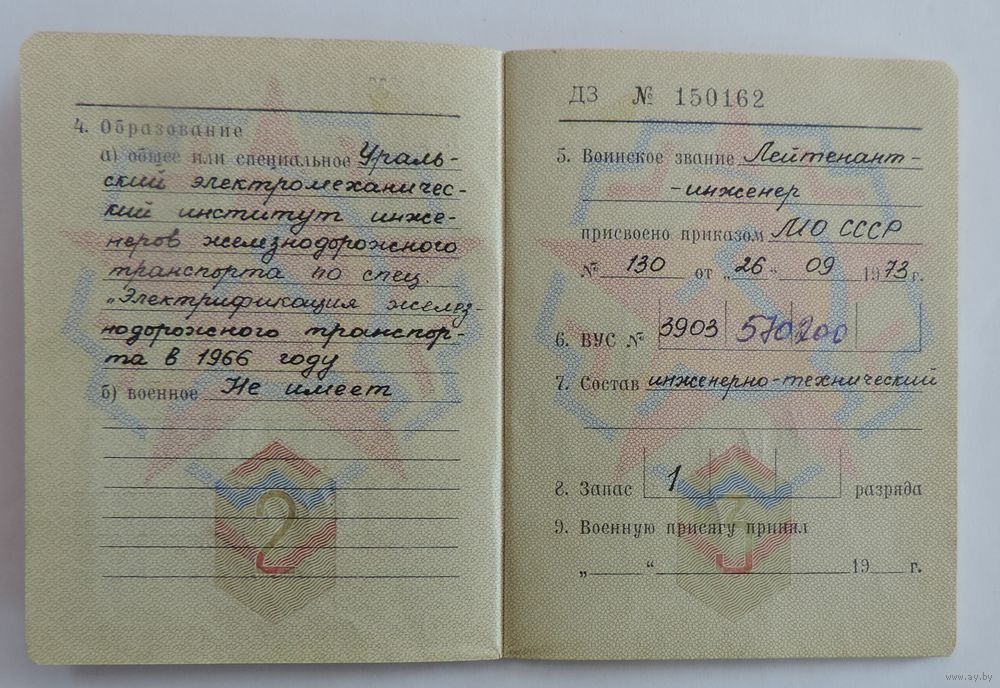 4. Образование
а) общее или специальное Ураль-
ский электромеханичес-
кий институт инже-
неров железнодорожного
транспорта по спец.
„Электрификация желез-
нодорожного транспор-
та в 1966 году
б) военное Не имеет
2
ДЗ № 150162
5. Воинское звание Лейтенант-
-инженер
присвоено приказом МО СССР
№ 130 от „26“ 09 1973 г.
6. ВУС № 3903 570200
7. Состав инженерно-технический
8. Запас 1 разряда
9. Военную присягу принял
„ “ 19 г.
www.ay.by